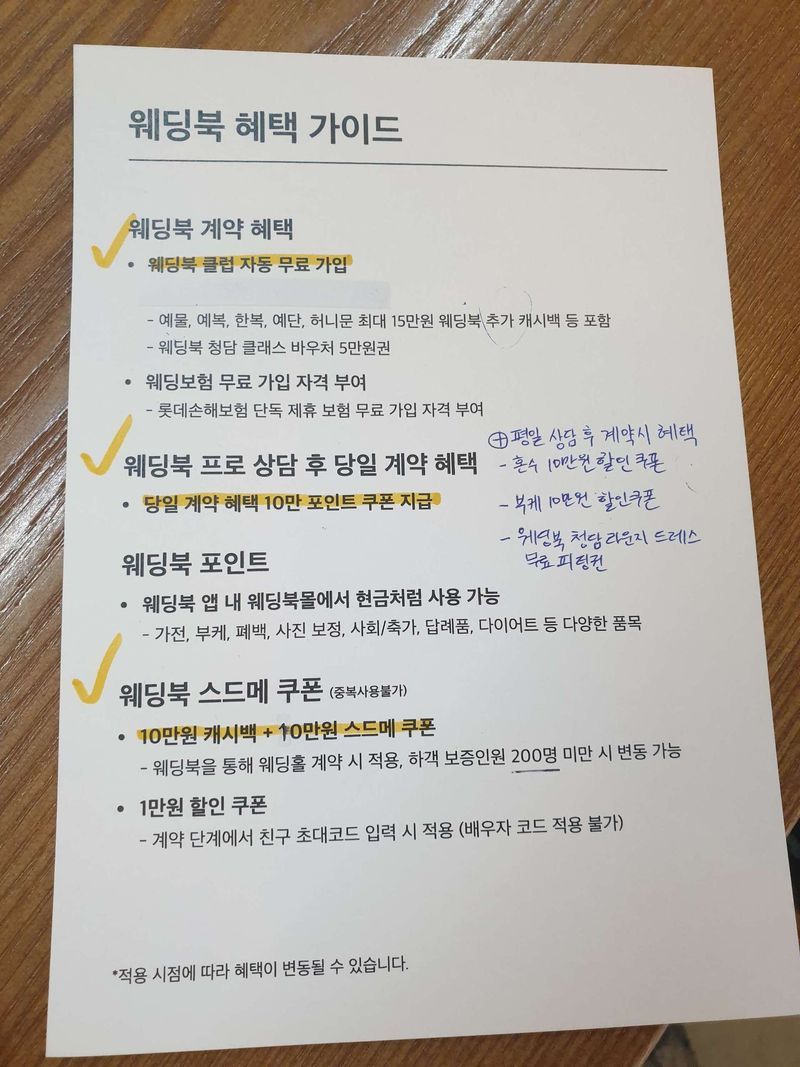 웨딩북 혜택 가이드
웨딩북 계약 혜택
• 웨딩북 클럽 자동 무료 가입
- 예물, 예복, 한복, 예단, 허니문 최대 15만원 웨딩북 추가 캐시백 등 포함
- 웨딩북 청담 클래스 바우처 5만원권
• 웨딩보험 무료 가입 자격 부여
- 롯데손해보험 단독 제휴 보험 무료 가입 자격 부여
웨딩북 프로 상담 후 당일 계약 혜택
• 당일 계약 혜택 10만 포인트 쿠폰 지급
⊕ 평일 상담 후 계약시 혜택
- 혼수 10만원 할인 쿠폰
- 부케 10만원 할인쿠폰
- 웨딩북 청담라운지 드레스
무료 피팅권
웨딩북 포인트
• 웨딩북 앱 내 웨딩북몰에서 현금처럼 사용 가능
- 가전, 부케, 폐백, 사진 보정, 사회/축가, 답례품, 다이어트 등 다양한 품목
웨딩북 스드메 쿠폰 (중복사용불가)
• 10만원 캐시백 + 10만원 스드메 쿠폰
- 웨딩북을 통해 웨딩홀 계약 시 적용, 하객 보증인원 200명 미만 시 변동 가능
• 1만원 할인 쿠폰
- 계약 단계에서 친구 초대코드 입력 시 적용 (배우자 코드 적용 불가)
*적용 시점에 따라 혜택이 변동될 수 있습니다.